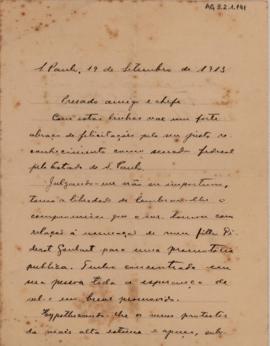 AG 3.2.1.141
S. Paulo, 19 de Setembro de 1913
Presado amigo e chefe
Com estas linhas vae um forte
abraço de felicitação pelo seu justo re
conhecimento como senador federal
pelo Estado de S. Paulo.
Julgando-me não ser importuno,
tomo a liberdade de lembrar-lhe o
compromisso que o snr. tomou com
relação á nomeação de meu filho Di
derot Goulart para uma promotoria
publica. Tenho concentrado em
sua pessoa toda a esperança de
vel-o em breve promovido.
Hypothecando-lhe os meus protestos
da mais alta estima e apreço, sub